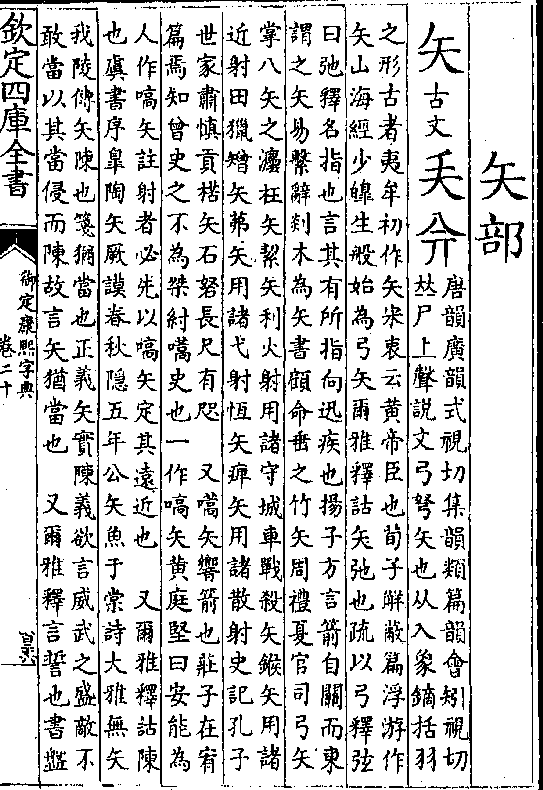 矢部
矢古文𠂕𠓟
唐韻廣韻式視切集韻類篇韻會矧視切
𠀤尸上聲說文弓弩矢也从入象鏑括羽
之形古者夷牟初作矢宋衷云黄帝臣也荀子解蔽篇浮游作
矢山海經少皥生般始為弓矢爾雅釋詁矢弛也疏以弓釋弦
曰弛釋名指也言其有所指向迅疾也揚子方言箭自關而東
謂之矢易繫辭剡木為矢書顧命垂之竹矢周禮夏官司弓矢
掌八矢之灋枉矢絜矢利火射用諸守城車戰殺矢鍭矢用諸
近射田獵矰矢茀矢用諸弋射恆矢痺矢用諸散射史記孔子
世家肅慎貢楛矢石砮長尺有咫　又嚆矢響箭也莊子在宥
篇焉知曾史之不為桀紂嚆史也一作嗃矢黄庭堅曰安能為
人作嗃矢註射者必先以嗃矢定其遠近也　又爾雅釋詁陳
也虞書序臯陶矢厥謨春秋隱五年公矢魚于棠詩大雅無矢
我陵傳矢陳也箋猶當也正義矢實陳義欲言威武之盛敵不
敢當以其當侵而陳故言矢猶當也　又爾雅釋言誓也書盤
欽定四庫全書
御定康熙字典
卷二十